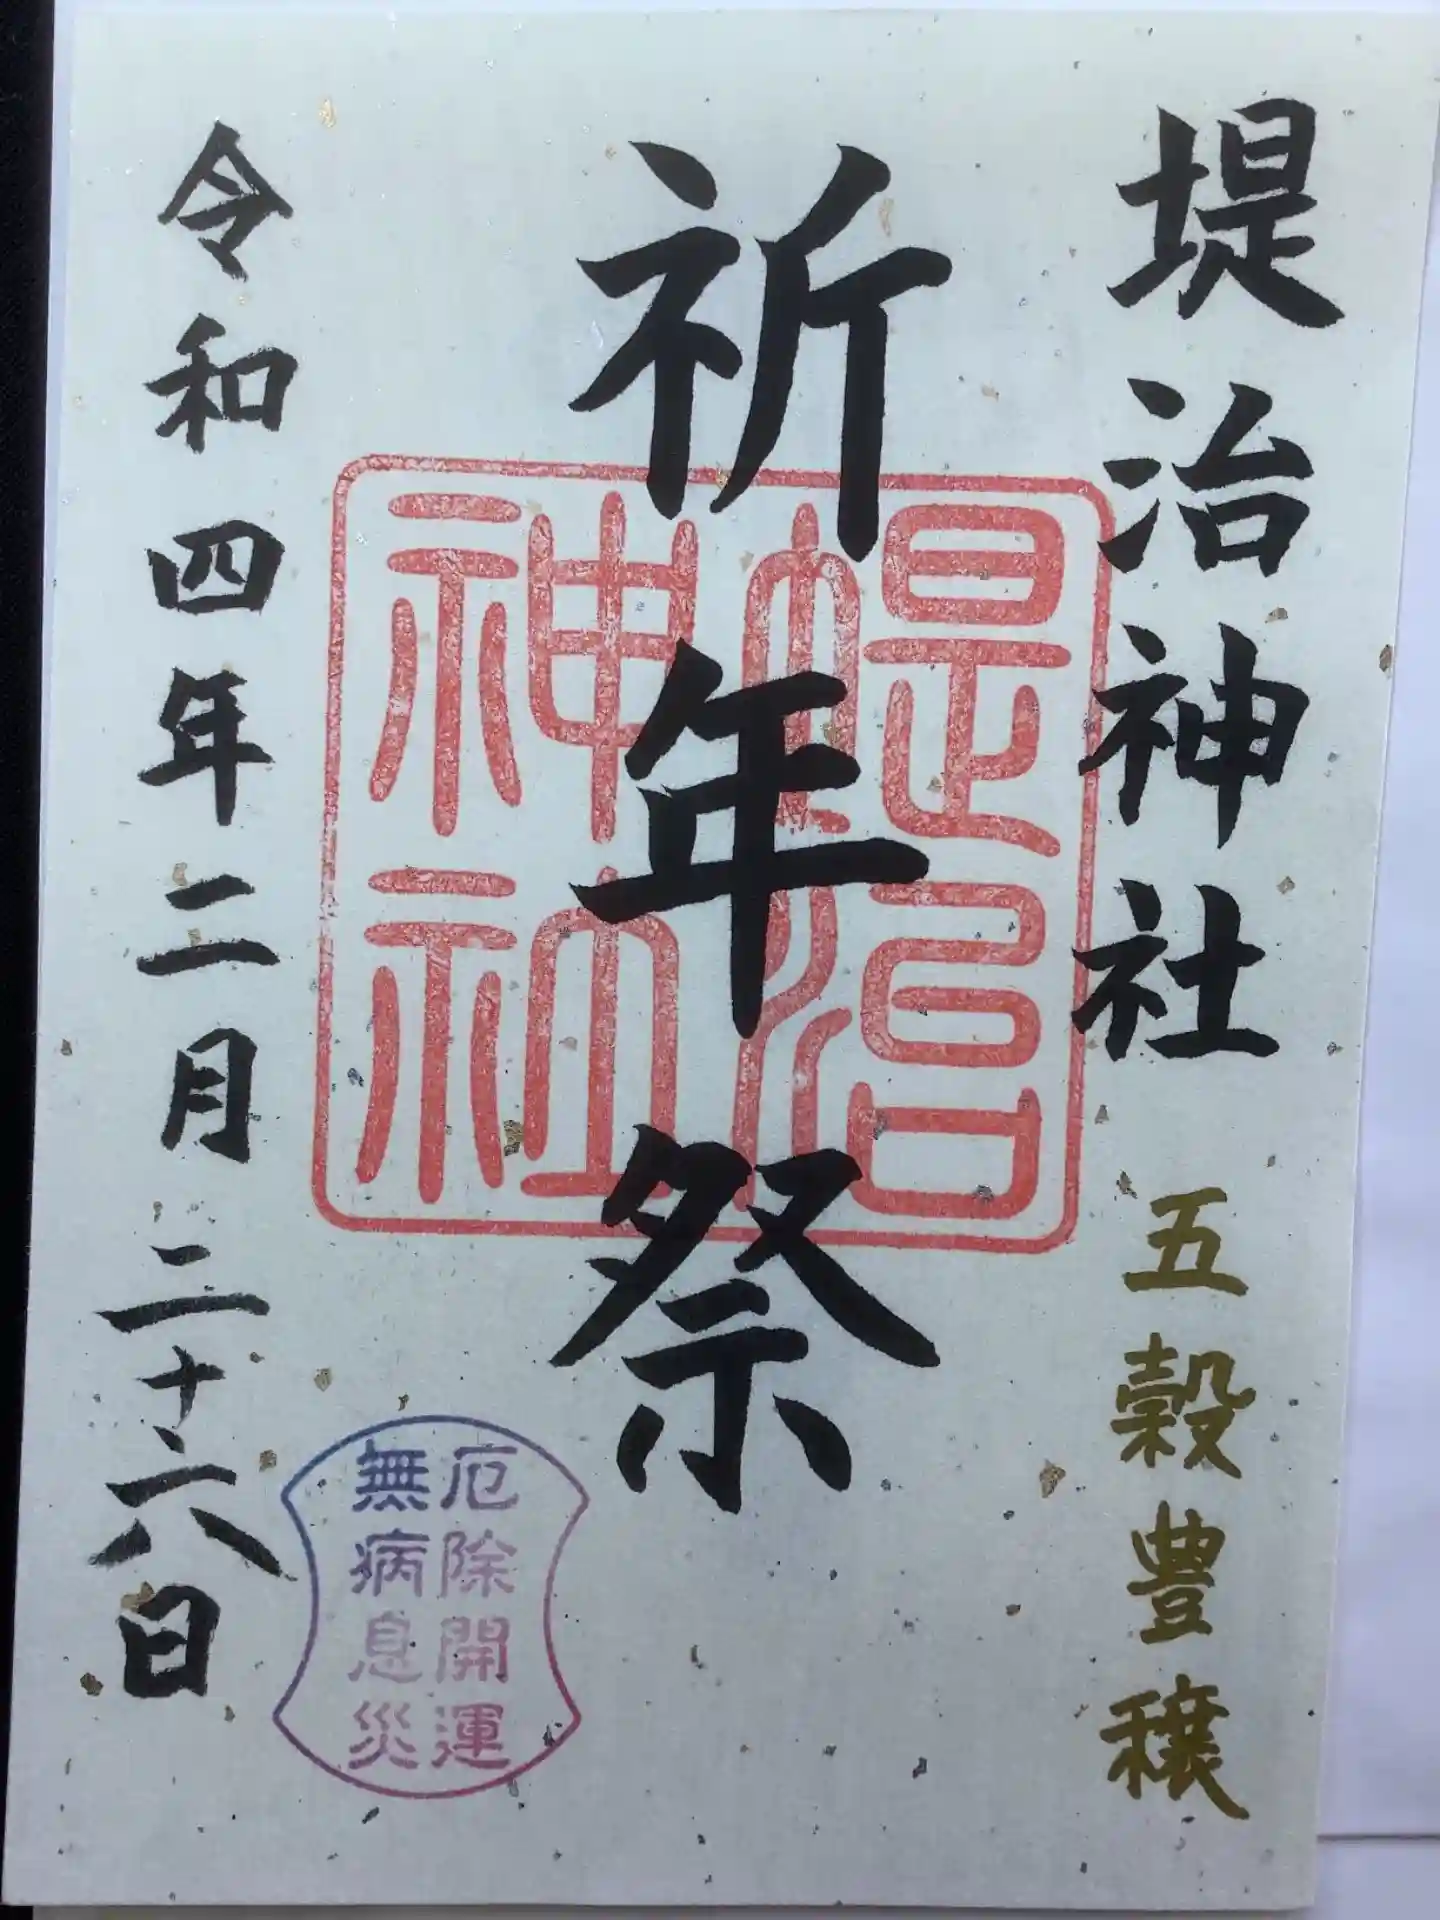 堤治神社
五穀豊穣
祈年祭
堤治
神社
令和四年二月二十六日
厄除開運
無病息災